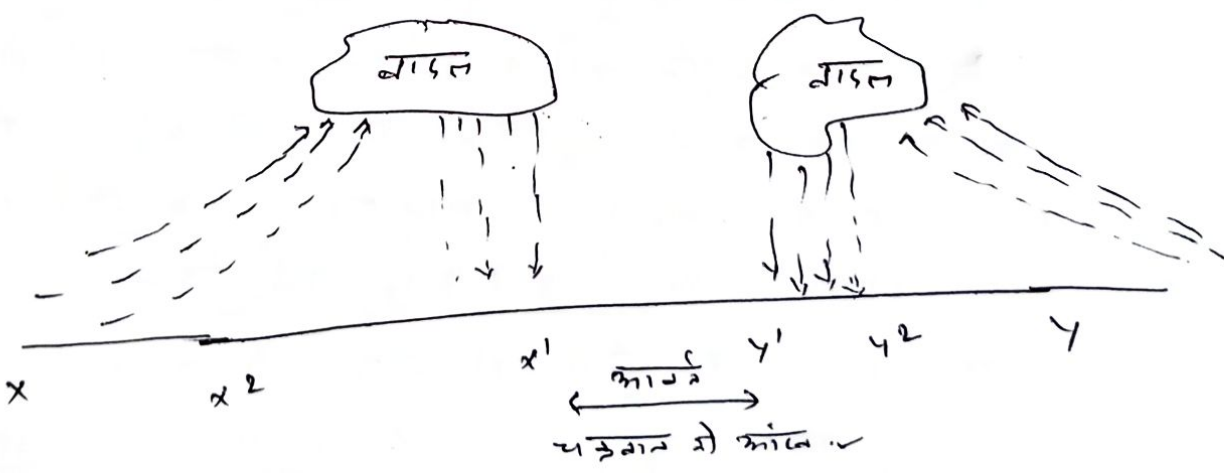 बादल
बादल
x x² x¹ y¹ y² y
आवर्त
चक्रवात की आंख